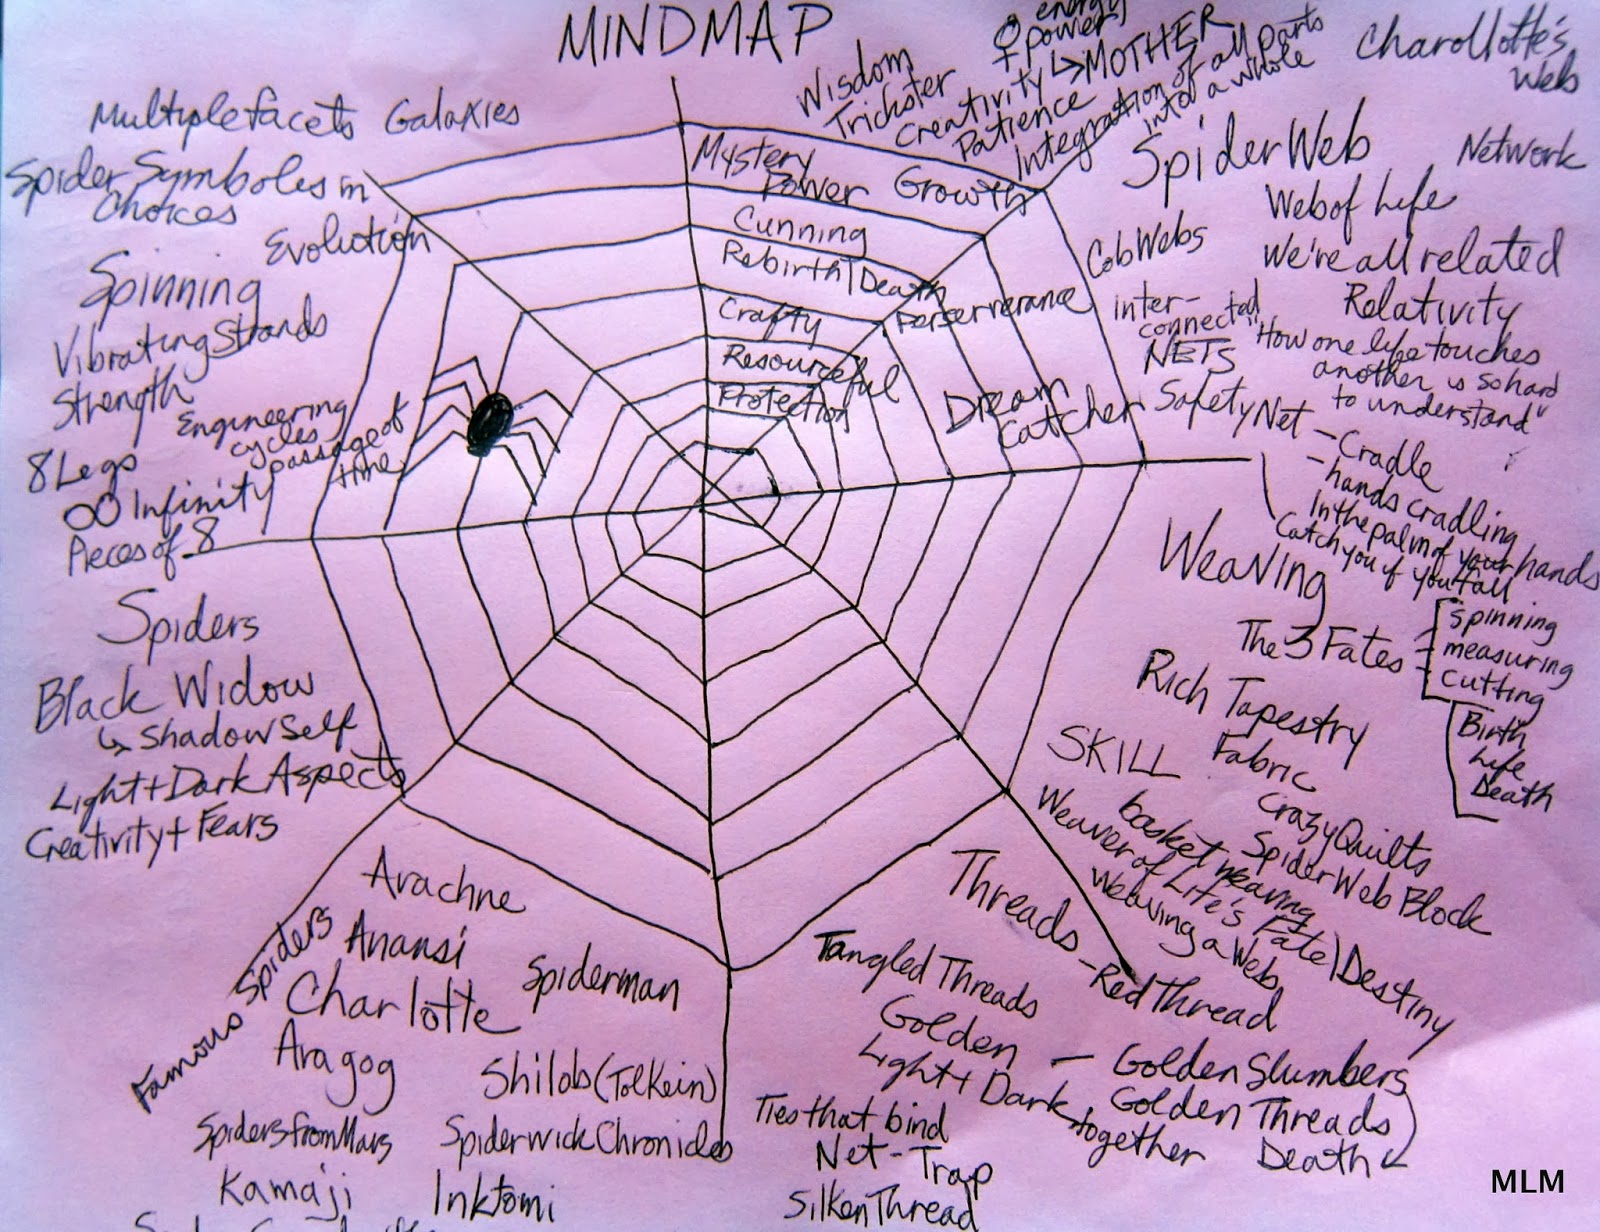 MINDMAP
Multiple facets Galaxies
Spider Symboles in
Choices
Evolution
Spinning
Vibrating Strands
Strength
Engineering
cycles
passage of
time
8 Legs
OO Infinity
Pieces of 8
Spiders
Black Widow
↳ Shadow Self
Light + Dark Aspects
Creativity + Fears
Famous Spiders
Arachne
Anansi
Spiderman
Charlotte
Aragog
Shilob (Tolkein)
Spiders from Mars
Spiderwick Chronicles
Kamaji
Inktomi
Mystery
Power
Growth
Cunning
Rebirth/Death
Perserverance
Crafty
Resourceful
Protection
Dream
Catcher
Wisdom
Trickster
♀ energy
power
Creativity ↳ MOTHER
Patience
Integration of all parts
into a whole
Charollotte's
Web
Spider Web
Network
Web of Life
CobWebs
We're all related
inter-
connected
NETS
Relativity
"How one life touches
another is so hard
to understand"
Safety Net
- Cradle
- hands cradling
In the palm of your hands
Catch you if you fall
Weaving
The 3 Fates
- Spinning
- measuring
- cutting
Birth
Life
Death
Rich Tapestry
Fabric
SKILL
Crazy Quilts
Spider Web Block
basket weaving
Weaver of Life's Fate/Destiny
Weaving a Web
Threads
- Red Thread
Tangled Threads
Golden
- Golden Slumbers
Golden Threads
Death
Light + Dark
together
Ties that bind
Net - Trap
Silken Thread
MLM